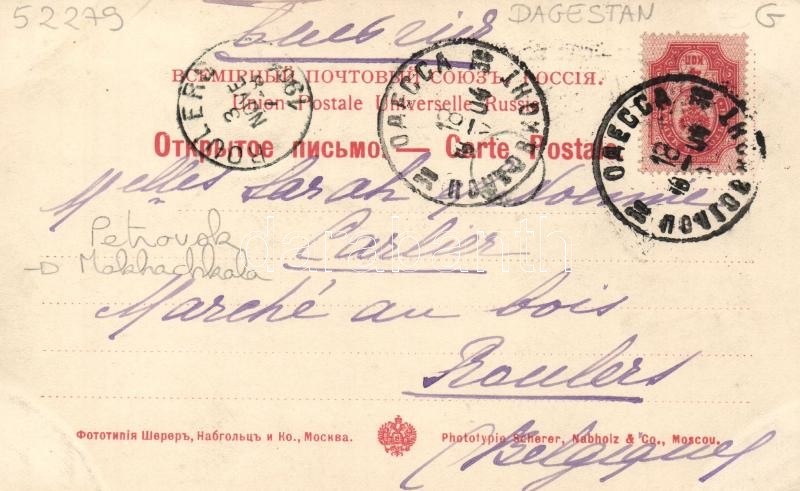 52279 DAGESTAN G
Бельгия
ВСЕМІРНЫЙ ПОЧТОВЫЙ СОЮЗЪ. РОССІЯ.
Union Postale Universelle Russie
Открытое письмо. — Carte Postale
ROULERS
1904
ОДЕССА
18
ОДЕССА
18
КОП
Melles Sarah
Petrovsk
Carlier
Makhachkala
darabanth
Marché au bois
Roulers
Фототипія Шереръ, Набгольцъ и Ко., Москва. Phototypie Scherer, Nabholz & Co., Moscou.
(Belgique)